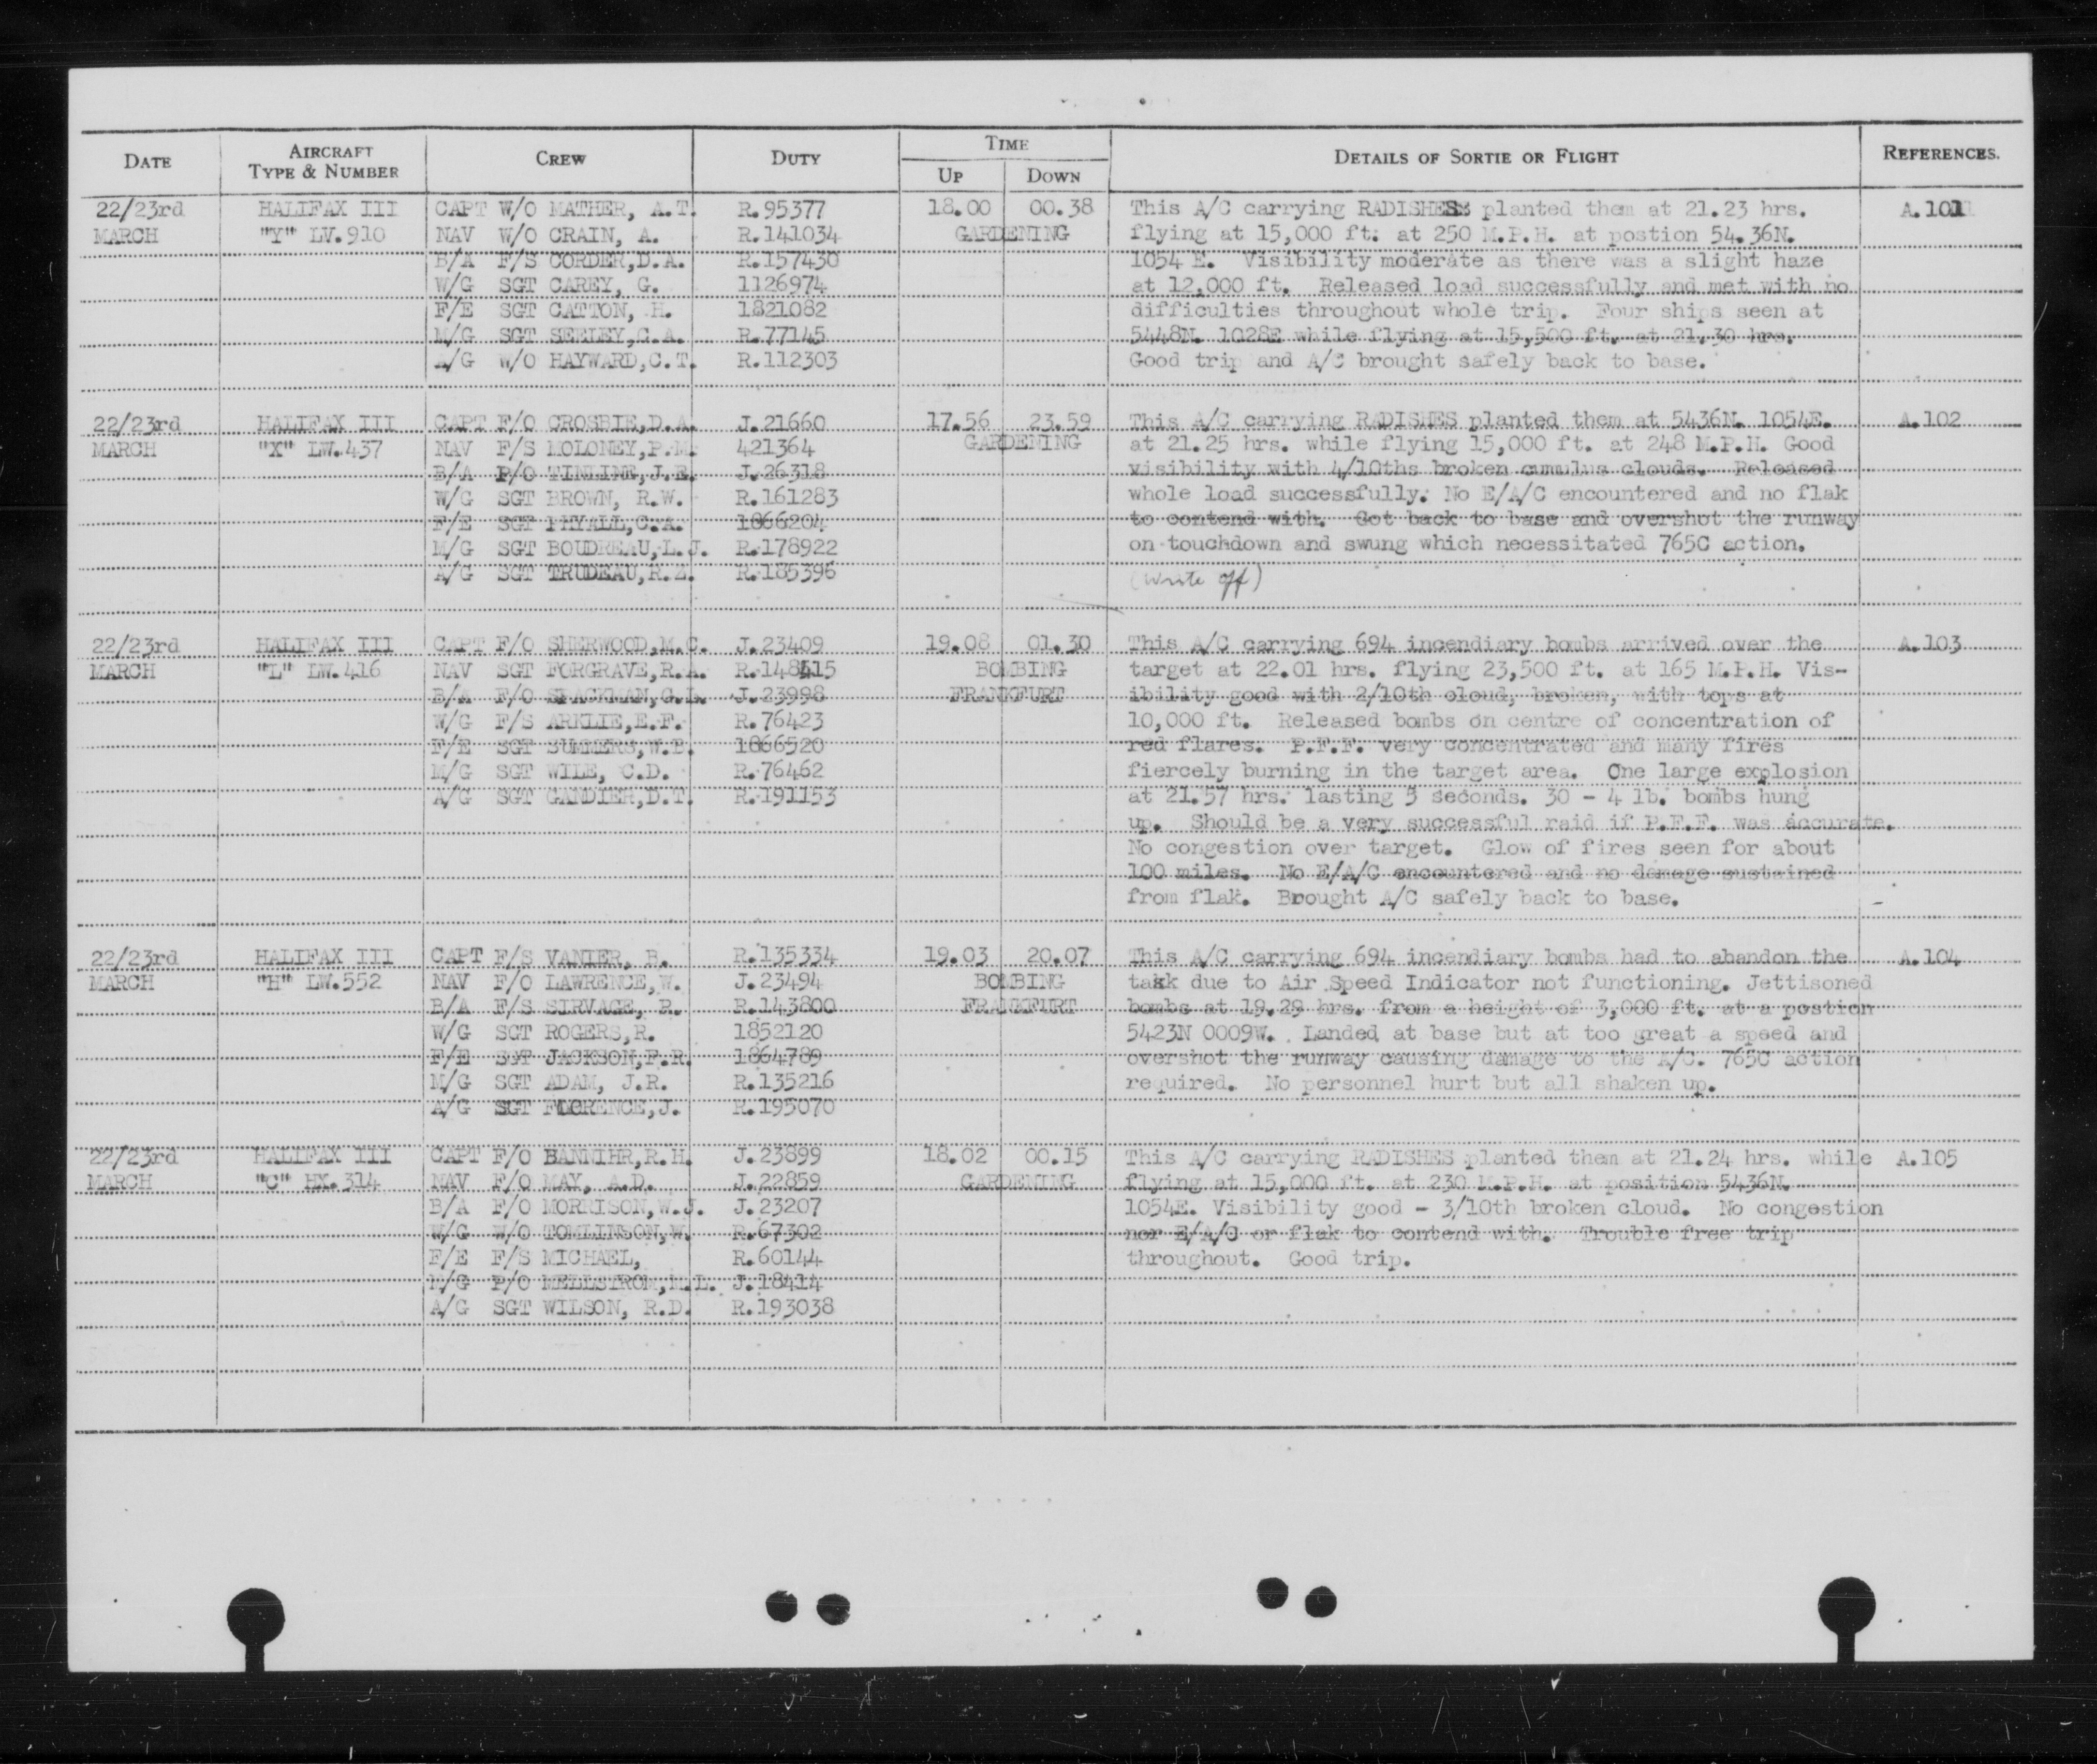 DATE AIRCRAFT TYPE & NUMBER CREW DUTY TIME UP DOWN DETAILS OF SORTIE OR FLIGHT REFERENCES.
22/23rd HALIFAX III CAPT W/O MATHER, A.T. R.95377 18.00 00.38 This A/C carrying RADISHES planted them at 21.23 hrs. A.101
MARCH "Y" LV.910 NAV W/O CRAIN, A. R.141034 GARDENING flying at 15,000 ft. at 250 M.P.H. at postion 54.36N.
B/A F/S CORDER,D.A. R.157430 1054 E. Visibility moderate as there was a slight haze
W/G SGT CAREY, G. 1126974 at 12,000 ft. Released load successfully and met with no
F/E SGT CATTON, H. 1821082 difficulties throughout whole trip. Four ships seen at
M/G SGT SEELEY,G.A. R.77145 5448N. 1028E while flying at 15,500 ft. at 21.30 hrs.
A/G W/O HAYWARD,C.T. R.112303 Good trip and A/C brought safely back to base.
22/23rd HALIFAX III CAPT F/O CROSBIE,D.A. J.21660 17.56 23.59 This A/C carrying RADISHES planted them at 5436N. 1054E. A.102
MARCH "X" LW.437 NAV F/S MOLONEY,P.M. 421364 GARDENING at 21.25 hrs. while flying 15,000 ft. at 248 M.P.H. Good
B/A P/O TINLINE,J.E. J.26318 visibility with 4/10ths broken cumulus clouds. Released
W/G SGT BROWN, R.W. R.161283 whole load successfully. No E/A/C encountered and no flak
F/E SGT PHYALL,C.A. 1866204 to contend with. Got back to base and overshot the runway
M/G SGT BOUDREAU,L.J. R.178922 on touchdown and swung which necessitated 765C action.
A/G SGT TRUDEAU,R.Z. R.185396 (write off)
22/23rd HALIFAX III CAPT F/O SHERWOOD,M.C. J.23409 19.08 01.30 This A/C carrying 694 incendiary bombs arrived over the A.103
MARCH "L" LW.416 NAV SGT FORGRAVE,R.A. R.148415 BOMBING target at 22.01 hrs. flying 23,500 ft. at 165 M.P.H. Vis-
B/A F/O SPACKMAN,G.L. J.23998 FRANKFURT ibility good with 2/10th cloud, broken, with tops at
W/G F/S ARKLIE,E.F. R.76423 10,000 ft. Released bombs on centre of concentration of
F/E SGT SUMMERS,W.B. 1866520 red flares. P.F.F. very concentrated and many fires
M/G SGT WILE, C.D. R.76462 fiercely burning in the target area. One large explosion
A/G SGT GANDIER,D.T. R.191153 at 21.57 hrs. lasting 5 seconds. 30 - 4 lb. bombs hung
up. Should be a very successful raid if P.F.F. was accurate.
No congestion over target. Glow of fires seen for about
100 miles. No E/A/C encountered and no damage sustained
from flak. Brought A/C safely back to base.
22/23rd HALIFAX III CAPT F/S VANIER, B. R.135334 19.03 20.07 This A/C carrying 694 incendiary bombs had to abandon the A.104
MARCH "H" LW.552 NAV F/O LAWRENCE,W. J.23494 BOMBING task due to Air Speed Indicator not functioning. Jettisoned
B/A F/S SIRVAGE, R. R.143800 FRANKFURT bombs at 19.29 hrs. from a height of 3,000 ft. at a postion
W/G SGT ROGERS,R. 1852120 5423N 0009W. Landed at base but at too great a speed and
F/E SGT JACKSON,F.R. 1864789 overshot the runway causing damage to the A/C. 765C action
M/G SGT ADAM, J.R. R.135216 required. No personnel hurt but all shaken up.
A/G SGT FLORENCE,J. R.195070
22/23rd HALIFAX III CAPT F/O BANNIHR,R.H. J.23899 18.02 00.15 This A/C carrying RADISHES planted them at 21.24 hrs. while A.105
MARCH "C" HX.314 NAV F/O MAY, A.D. J.22859 GARDENING flying at 15,000 ft. at 230 M.P.H. at position 5436N.
B/A F/O MORRISON,W.J. J.23207 1054E. Visibility good - 3/10th broken cloud. No congestion
W/G W/O TOMLINSON,W. R.67302 nor E/A/C or flak to contend with. Trouble free trip
F/E F/S MICHAEL, R.60144 throughout. Good trip.
M/G P/O MELLSTROM,M.L. J.18414
A/G SGT WILSON, R.D. R.193038